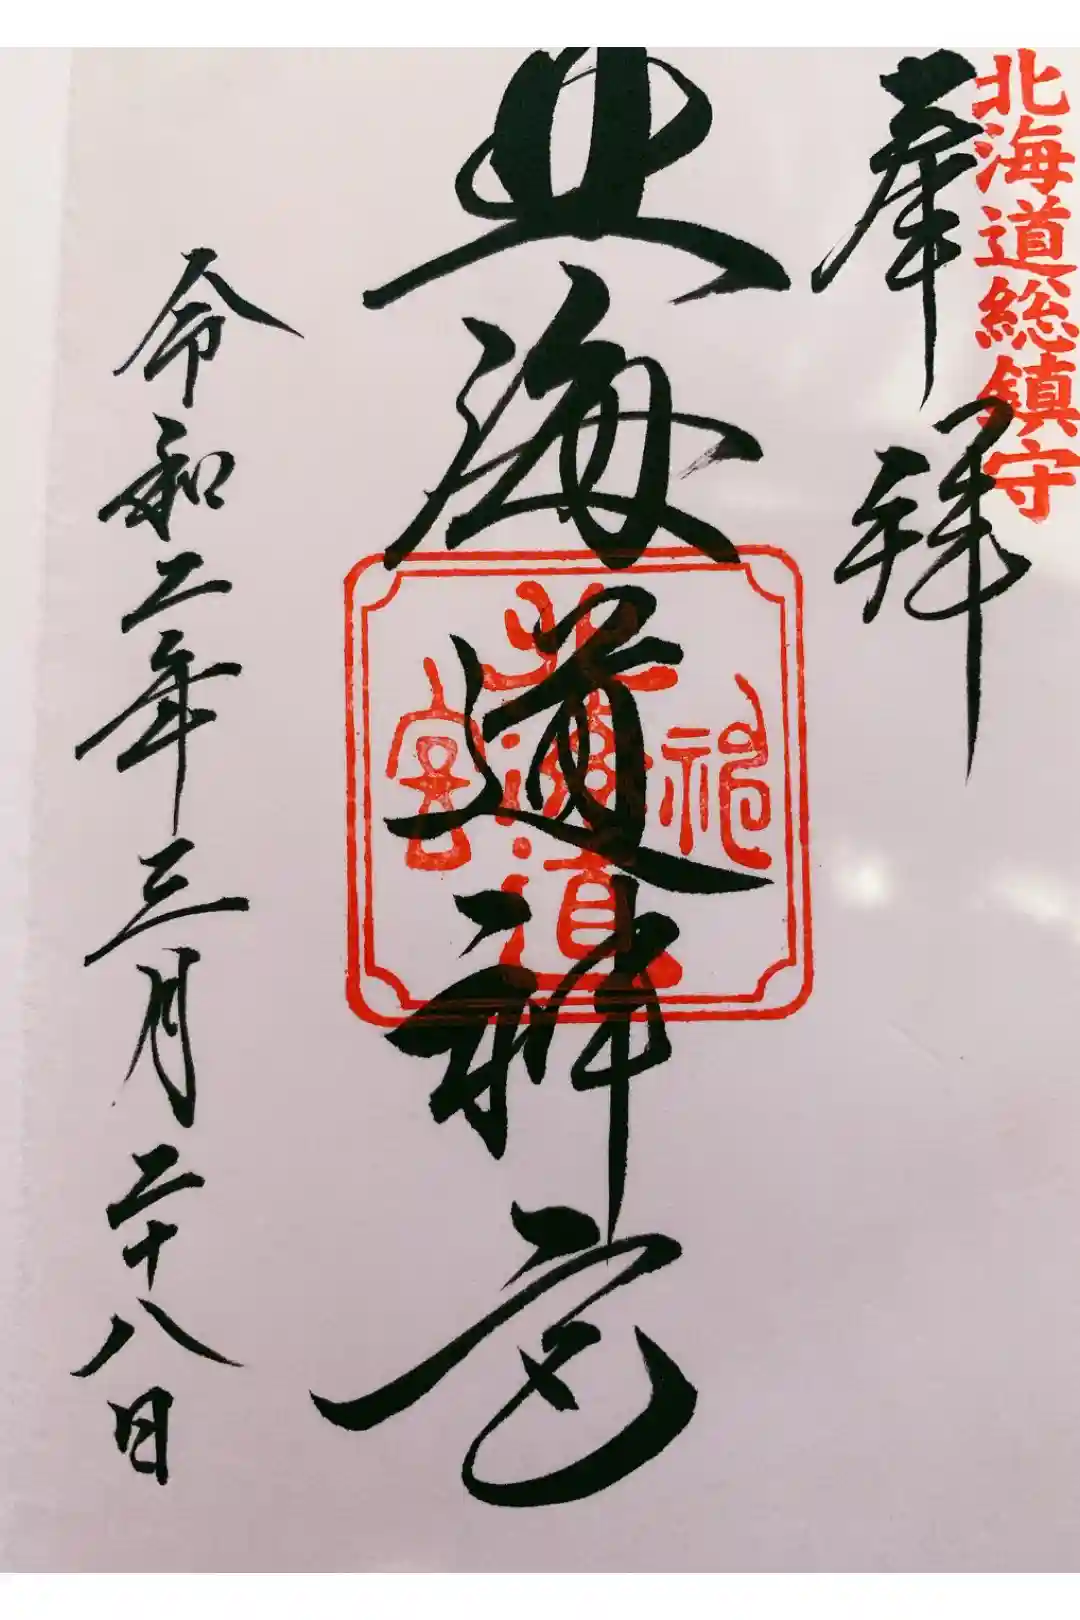 北海道総鎮守
奉拝
北海道神宮
北海道
神
宮
令和二年三月二十八日